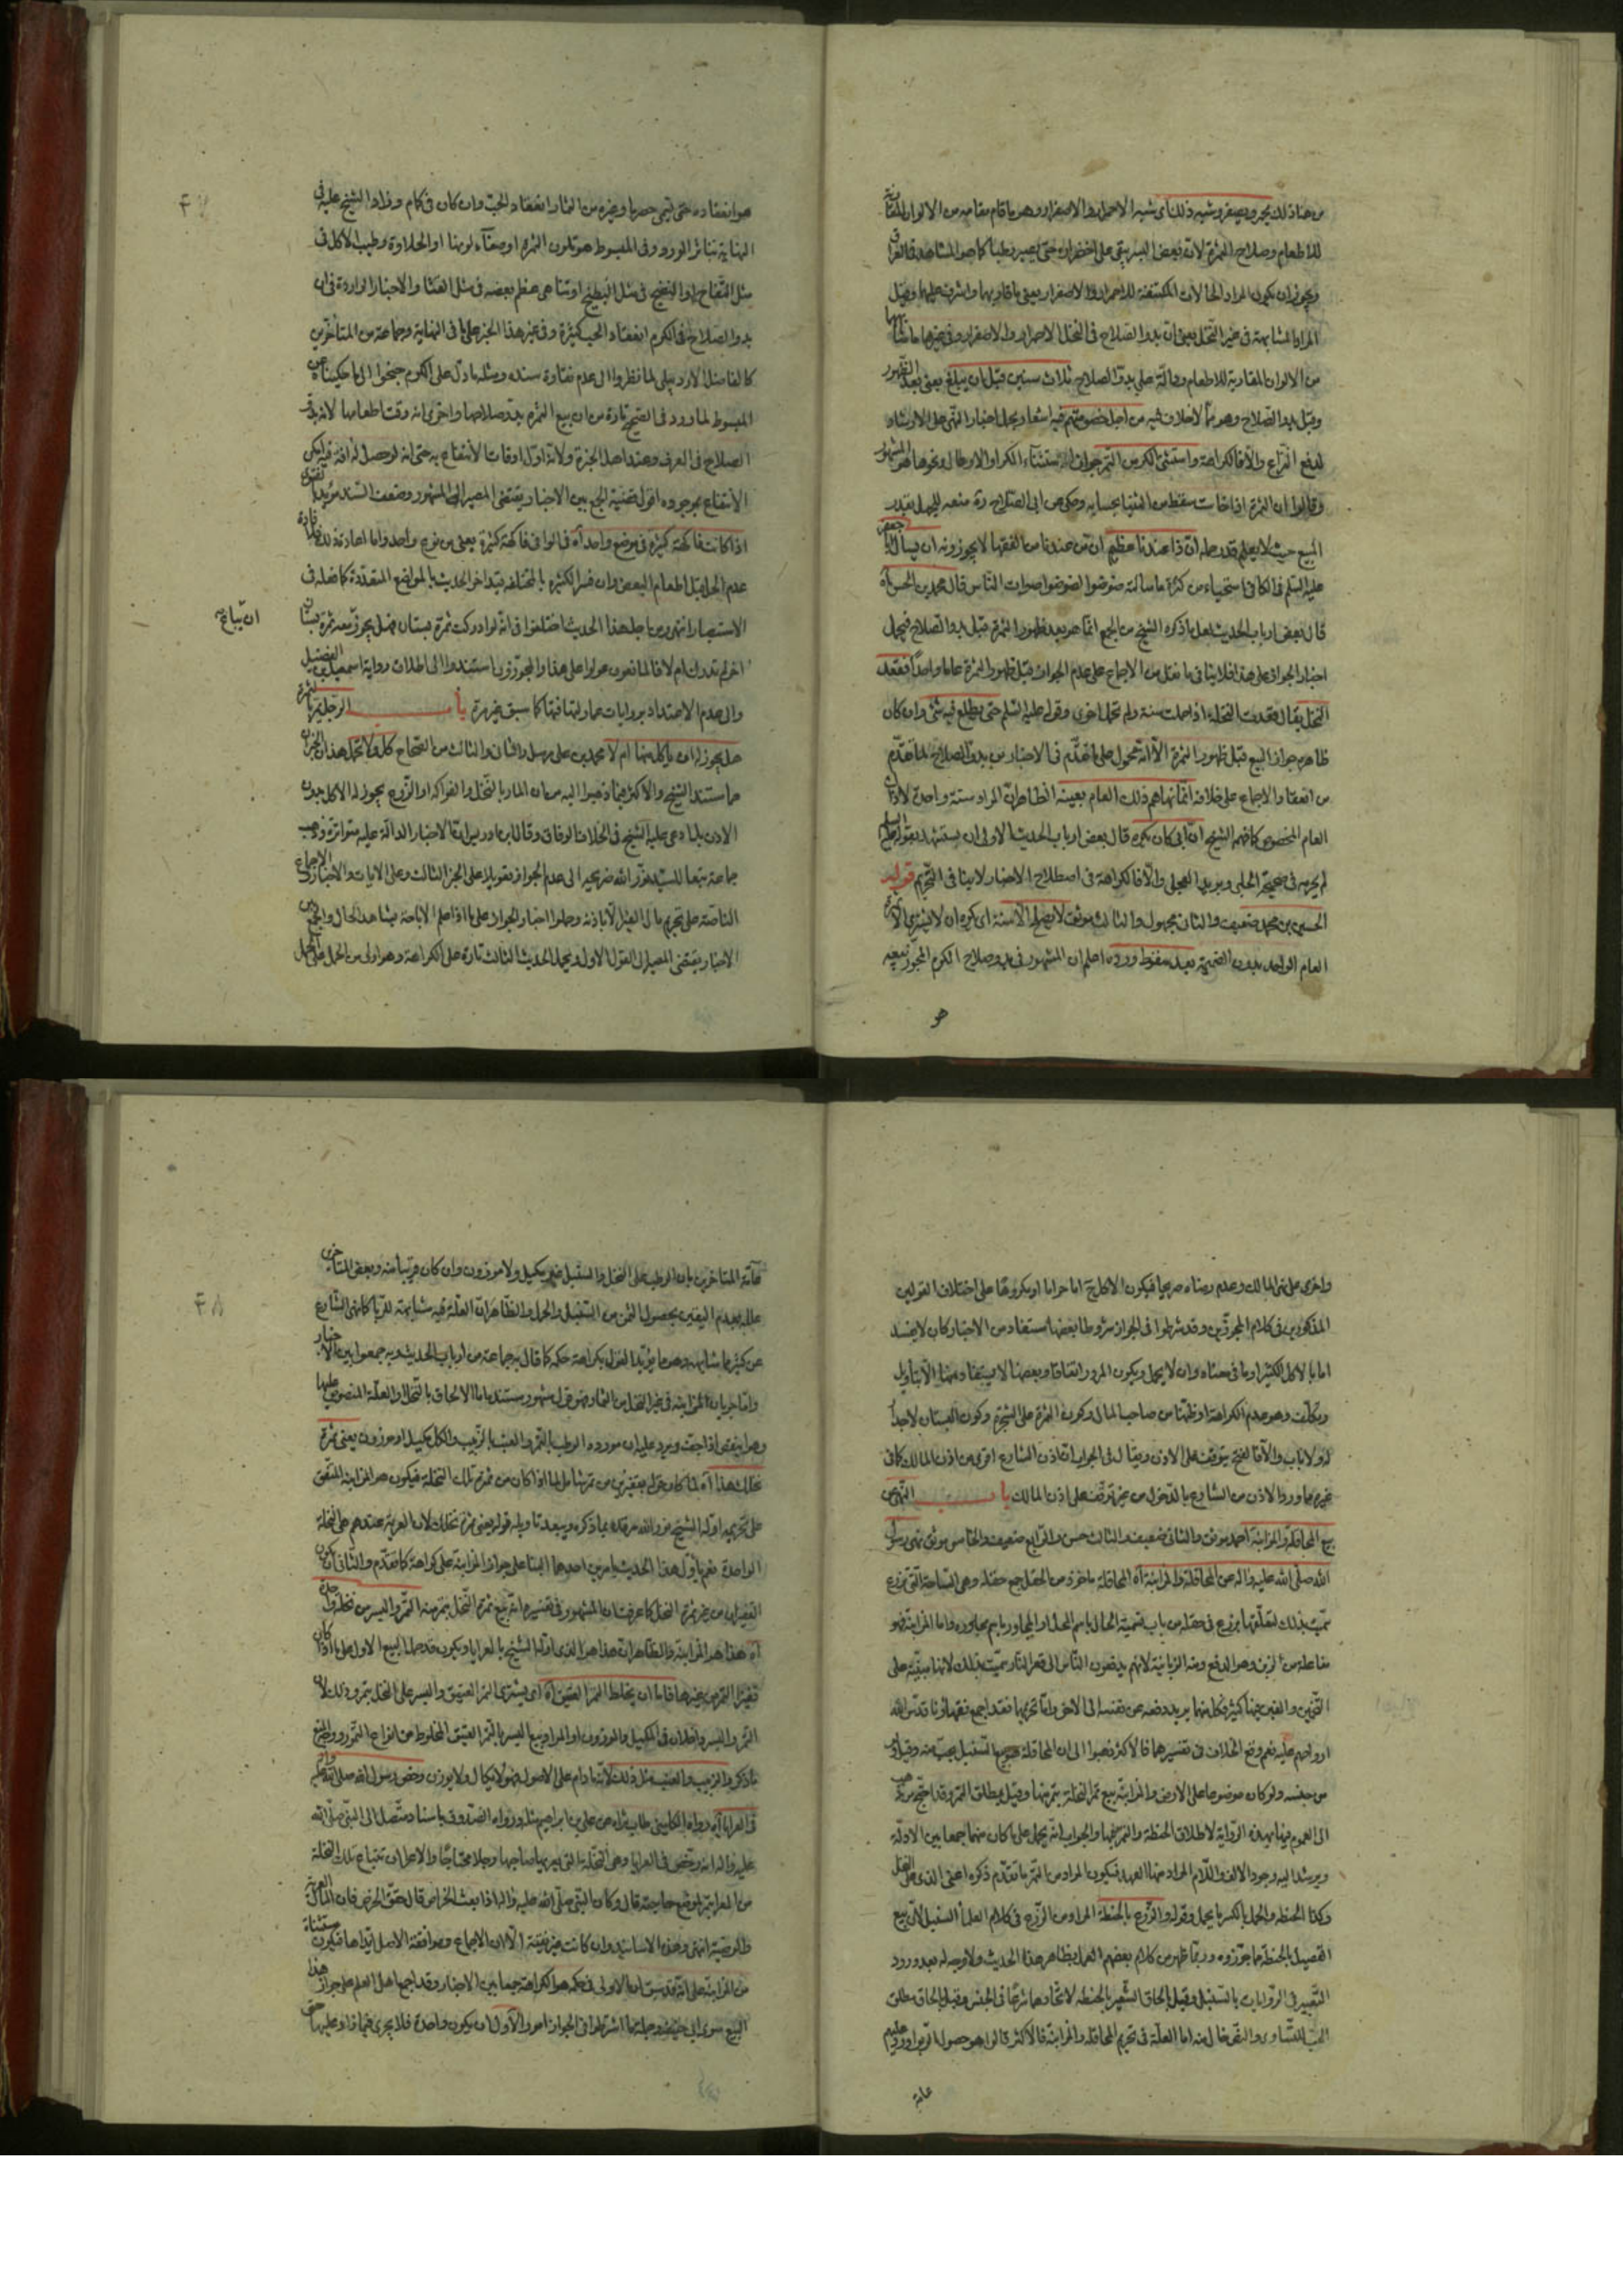 من هنا ذلك يحمر ويصفر وشبه ذلك اى شبه الاحمرار والاصفرار وهو ما قام مقامه من الالوان المقارنة
للاطعام وصلاح الثمرة لان بعض البسر يبقى على اخضراره حتى يصير رطبا كما هو المشاهد فى العراق
ويجوز ان يكون المراد الحالات المكتنفة للاحمرار والاصفرار يعنى ما قاربهما واشرف عليهما وقيل
المراد المشابهة فى غير النخل يعنى ان بدو الصلاح فى النخل الاحمرار والاصفرار وفى غيرها ما شابهها
من الالوان المقاربة للاطعام ودالة على بدو الصلاح ثلاث سنين قبل ان يبلغ يعنى بعد الظهور
وقبل بدو الصلاح وهو مما لا خلاف فيه من اجل خصومتهم فيه اشعار بحمل اخبار النهى على الارشاد
لدفع النزاع والا فالكراهة واستثنى الكرمن التمر جواز استثناء الكر او الارطال ونحوها هو المشهور
وقالوا ان الثمرة اذا خاست سقط من الثنيا بحسابه وحكى عن ابى الصلاح ره منعه للجهل بقدر
المبيع حيث لا يعلم قدر جملة ان ذا عندنا عظيم ان من عندنا من الفقها لا يجوزونه ان يسال ابا جعفر
عليه السلم فى الكافى استحياء من كثرة ما سالته ضوضوا لضوضوا اصوات الناس قال محمد بن الحسن آه
قال بعض ارباب الحديث لعل ما ذكره الشيخ من الجمع انما هو بعد ظهور الثمرة قبل بدو الصلاح فيحمل
اخبار الجواز على هذا فلا ينافى ما نقل من الاجماع على عدم الجواز قبل ظهور الثمرة عاما واحدا فقعد
النخل يقال قعدت النخلة اذا حملت سنة ولم تحمل اخرى وقوله عليه السلم حتى يطلع فيه شئ وان كان
ظاهره جواز البيع قبل ظهور الثمرة الا انه محمول على ما تقدم فى الاخبار من بدو الصلاح لما تقدم
من انعقاد الاجماع على خلافه انما نهاهم ذلك العام بعينه الظاهر ان المراد سنة واحدة لا ذلك
العام المخصوص كما فهم الشيخ ان ابى كان يكره قال بعض ارباب الحديث الاولى ان يستشهد بقوله عليه السلم
لم يحرمه فى صحيحة الحلبى وبريد العجلى والا فالكراهة فى اصطلاح الاخبار لا ينافى التحريم قوله
الحسين بن محمد ضعيف والثانى مجهول والثالث موثق لا يصلح الا سنة اى كره ان لا يشترى الا ثمرة
العام الواحد بدون الضميمة بعد سقوط ورده اعلم ان المشهور فى بدو صلاح الكرم المجوز لبيعه
هو
هو انعقاده حتى يسمى حصرما وغيره من الثمار انعقاد الحب وان كان فى كمام وزاد الشيخ عليه فى
النهاية تناثر الورد وفى المبسوط هو تلون الثمرة او صفاء لونها او الحلاوة وطيب الاكل فى
مثل التفاح او النضج فى مثل البطيخ او تناهى عظم بعضه فى مثل القثا والاخبار الواردة فى ان
بدو الصلاح فى الكرم انعقاد الحب كثيرة وفى غير هذا الخبر عمل بها فى النهاية وجماعة من المتاخرين
كالفاضل الاردبيلى لما نظروا الى عدم نقاوة سنده ومثله ما دل على الكرم جنحوا الى ما حكيناه عن
المبسوط لما ورد فى الصحيح تارة من ان بيع الثمرة بدو صلاحها واخرى انه وقت اطعامها لانه بدو
الصلاح فى العرف وعند اهل الخبرة ولانه اول اوقات الانتفاع به حتى انه لو حصل له افة قبل
الانتفاع بوجوده اقول قضية الجمع بين الاخبار يقتضى المصير الى المشهور وضعف السند مؤيد
اذا كانت فاكهة كثيرة فى موضع واحد آه قالوا فى فاكهة كثيرة يعنى من نوع واحد واما اعادته
عدم الحل قبل اطعام البعض وان فسر الكثيرة بالمختلفة قيد اخر الحديث بالمواضع المتعددة كما فعله فى
الاستبصار انتهى ومن اجل هذا الحديث اختلفوا فى انه لو ادركت ثمرة بستان فهل يجوز بيعه ثمرة بستان
اخر لم تدرك ام لا فالمانعون عولوا على هذا والمجوزون استندوا الى اطلاق رواية اسمعيل بن الفضيل
والى عدم الاعتداد بروايات عمار لتهافتها كما سبق غير مرة باب الرجل يمر بالثمرة
هل يجوز له ان ياكل منها ام لا محمد بن على مرسل والثانى والثالث من الصحاح كل ولا تحمل هذان الخبران
هما مستند الشيخ والاكثر فيما ذهبوا اليه من ان المار بالنخل والفواكه او الزرع يجوز له الاكل بدون
الاذن بل ادعى عليه الشيخ فى الخلاف الوفاق وقال ابن ادريس ايضا الاخبار الدالة عليه متواترة وذهب
جماعة تبعا للسيد نور الله ضريحه الى عدم الجواز تعويلا على الخبر الثالث وعلى الايات والاخبار والاجماع
الناصة على تحريم مال الغير الا باذنه وحملوا اخبار الجواز على ما اذا علم الاباحة بشاهد الحال والجمع بين
الاخبار يقتضى المصير الى القول الاول ويحمل الحديث الثالث تارة على الكراهة وهو اولى من الحمل على الحمل
ان تباع صح
٤٧
واخرى على نهى المالك وعدم رضاه صريحا فيكون الاكل ح اما حراما او مكروها على اختلاف القولين
المذكورين فى كلام المجوزين وقد شرطوا فى الجواز شروطا بعضها مستفاد من الاخبار كان لا يفسد
اما بالاكل الكثير او ما فى معناه وان لا يحمل ويكون المرور اتفاقا وبعضها لا يستفاد منها الا بتاويل
وتكلف وهو عدم الكراهة او ظنها من صاحب المال وكون الثمرة على الشجرة وكون البستان لا جدار
له ولا باب والا فالفتح يتوقف على الاذن ويقال فى الجواب ان اذن الشارع اقوى من اذن المالك كما فى
غيره مما ورد الاذن من الشارع بالدخول من غير توقف على اذن المالك باب النهى عن
بيع المحاقلة والمزابنة احمد موثق والثانى ضعيف والثالث حسن والرابع ضعيف والخامس موثق نهى رسول
الله صلى الله عليه واله عن المحاقلة والمزابنة آه المحاقلة ماخوذ من الحقل جمع حقلة وهى الساحة التى تزرع
سميت بذلك لتعلقها بزرع فى حقله من باب تسمية الحال باسم المحل او المجاور باسم مجاوره واما المزابنة فهو
مفاعلة من الزبن وهو الدفع ومنه الزبانية لانهم يدفعون الناس الى قعر النار سميت بذلك لانها مبنية على
التخمين والغبن فيها كثير فكل منهما يريد دفعه عن نفسه الى الاخر واما تحريمها فقد اجمع فقهاؤنا قدس الله
ارواحهم عليه نعم وقع الخلاف فى تفسيرهما فالاكثر ذهبوا الى ان المحاقلة بيع السنبل بحب منه وقيل او
من جنسه ولو كان موضوعا على الارض والمزابنة بيع ثمر النخلة بتمر منها وقيل بمطلق التمر وقد احتج من ذهب
الى العموم فيها بهذه الرواية لاطلاق الحنطة والتمر فيها والجواب انه يحمل على ما كان منهما جمعا بين الادلة
ويرشد اليه وجود الالف واللام المراد منها العهد فيكون المراد من التمر ما تقدم ذكره اعنى الذى على النخل
وكذا الحنطة والحمل بالكسر ما يحمل وقوله والزرع بالحنطة المراد من الزرع فى كلام العلما السنبل لان بيع
القصيل بالحنطة مما جوزوه وربما ظهر من كلام بعضهم العمل بظاهر هذا الحديث ولا وجه له بعد ورود
التعبير فى الروايات بالسنبل وقيل بالحاق الشعير بالحنطة لاتحادهما شرعا فى الجنس وقيل بالحاق مطلق
الحب للتساوى والنص خال منه اما العلة فى تحريم المحاقلة والمزابنة فالاكثر قالوا هو حصول الربا واورد عليهم
عامة
عامة المتاخرين بان الرطب على النخل والسنبل غير مكيل ولا موزون وان كان قريبا منه وبعض المتاخرين
علله بعدم اليقين بحصول الثمن من السنبل والحمل والظاهر ان العلة فيه مشابهته للربا كما نهى الشارع
عن كثير مما شابهه وهو ما يؤيد القول بكراهة حكمه كما قال به جماعة من ارباب الحديث وبه جمعوا بين الاخبار
واما جريان المزابنة فى غير النخل من الثمار فهو قول مشهور مستنده اما الالحاق بالنخل او العلة المنصوص عليها
وهو اينقص اذا جف ويرد عليه ان مورده الرطب بالتمر والعنب بالزبيب والكل مكيل او موزون يعنى ثمرة
نخلك هذا آه لما كان قوله بقفيزين من تمر شاملا لما اذا كان من ثمرة تلك النخلة فيكون هو المزابنة المتفق
على تحريمه اوله الشيخ نور الله مرقده بما ذكره ويبعد تاويله قوله يعنى ثمرة نخلك لان العرية عندهم هى النخلة
الواحدة نعم ياول هذا الحديث بامرين احدهما البنا على جواز المزابنة على كراهة كما تقدم والثانى ان يكون
القفيزان من غير ثمرة النخل كما عرفت ان المشهور فى تفسيره انه بيع ثمرة النخل بتمر منه التمر والبسر من نخلة واحدة
آه هذا هو المزابنة والظاهر ان هذا هو الذى اوله الشيخ بالعرايا ويكون قد حمل البيع الاول على ما اذا كان
قفيزا التمر من غيرها فاما ان يخلط التمر العتيق آه اى يشترى التمر العتيق والبسر على النخل بتمر وذلك لان
التمر والبسر داخلان فى المكيل والموزون او المراد بيع البسر بالتمر العتيق المخلوط من انواع التمر ووالمنع
ما ذكر والزبيب والعنب مثل ذلك لانه ما دام على الاصول فهو لا يكال ولا يوزن ورخص رسول الله صلى الله عليه واله
فى العرايا آه رواه الكلينى طاب ثراه عن على بن ابراهيم مثله ورواه الصدوق باسناد متصل الى النبى صلى الله
عليه واله انه رخص فى العرايا وهى النخلة التى يعريها صاحبها رجلا محتاجا والاعراان تبتاع تلك النخلة
من المعرا بتمر لموضع حاجته قال وكان النبى صلى الله عليه واله اذا بعث الخراص قال خففوا الخرص فان فى المال العرية
والوصية انتهى وهذه الاسانيد وان كانت غير نقية الا ان الاجماع وموافقة الاصل ايداها فيكون مستثناة
من المزابنة على انه قد سبق ان الاولى فى حكمه هو الكراهة جمعا بين الاخبار وقد اجمع اهل العلم على جواز هذا
البيع سوى ابى حنيفة وجملة ما اشترطوا فى الجواز امور الاول ان يكون واحدة فلا يجرى فيما زاد عليها حتى
٤٨